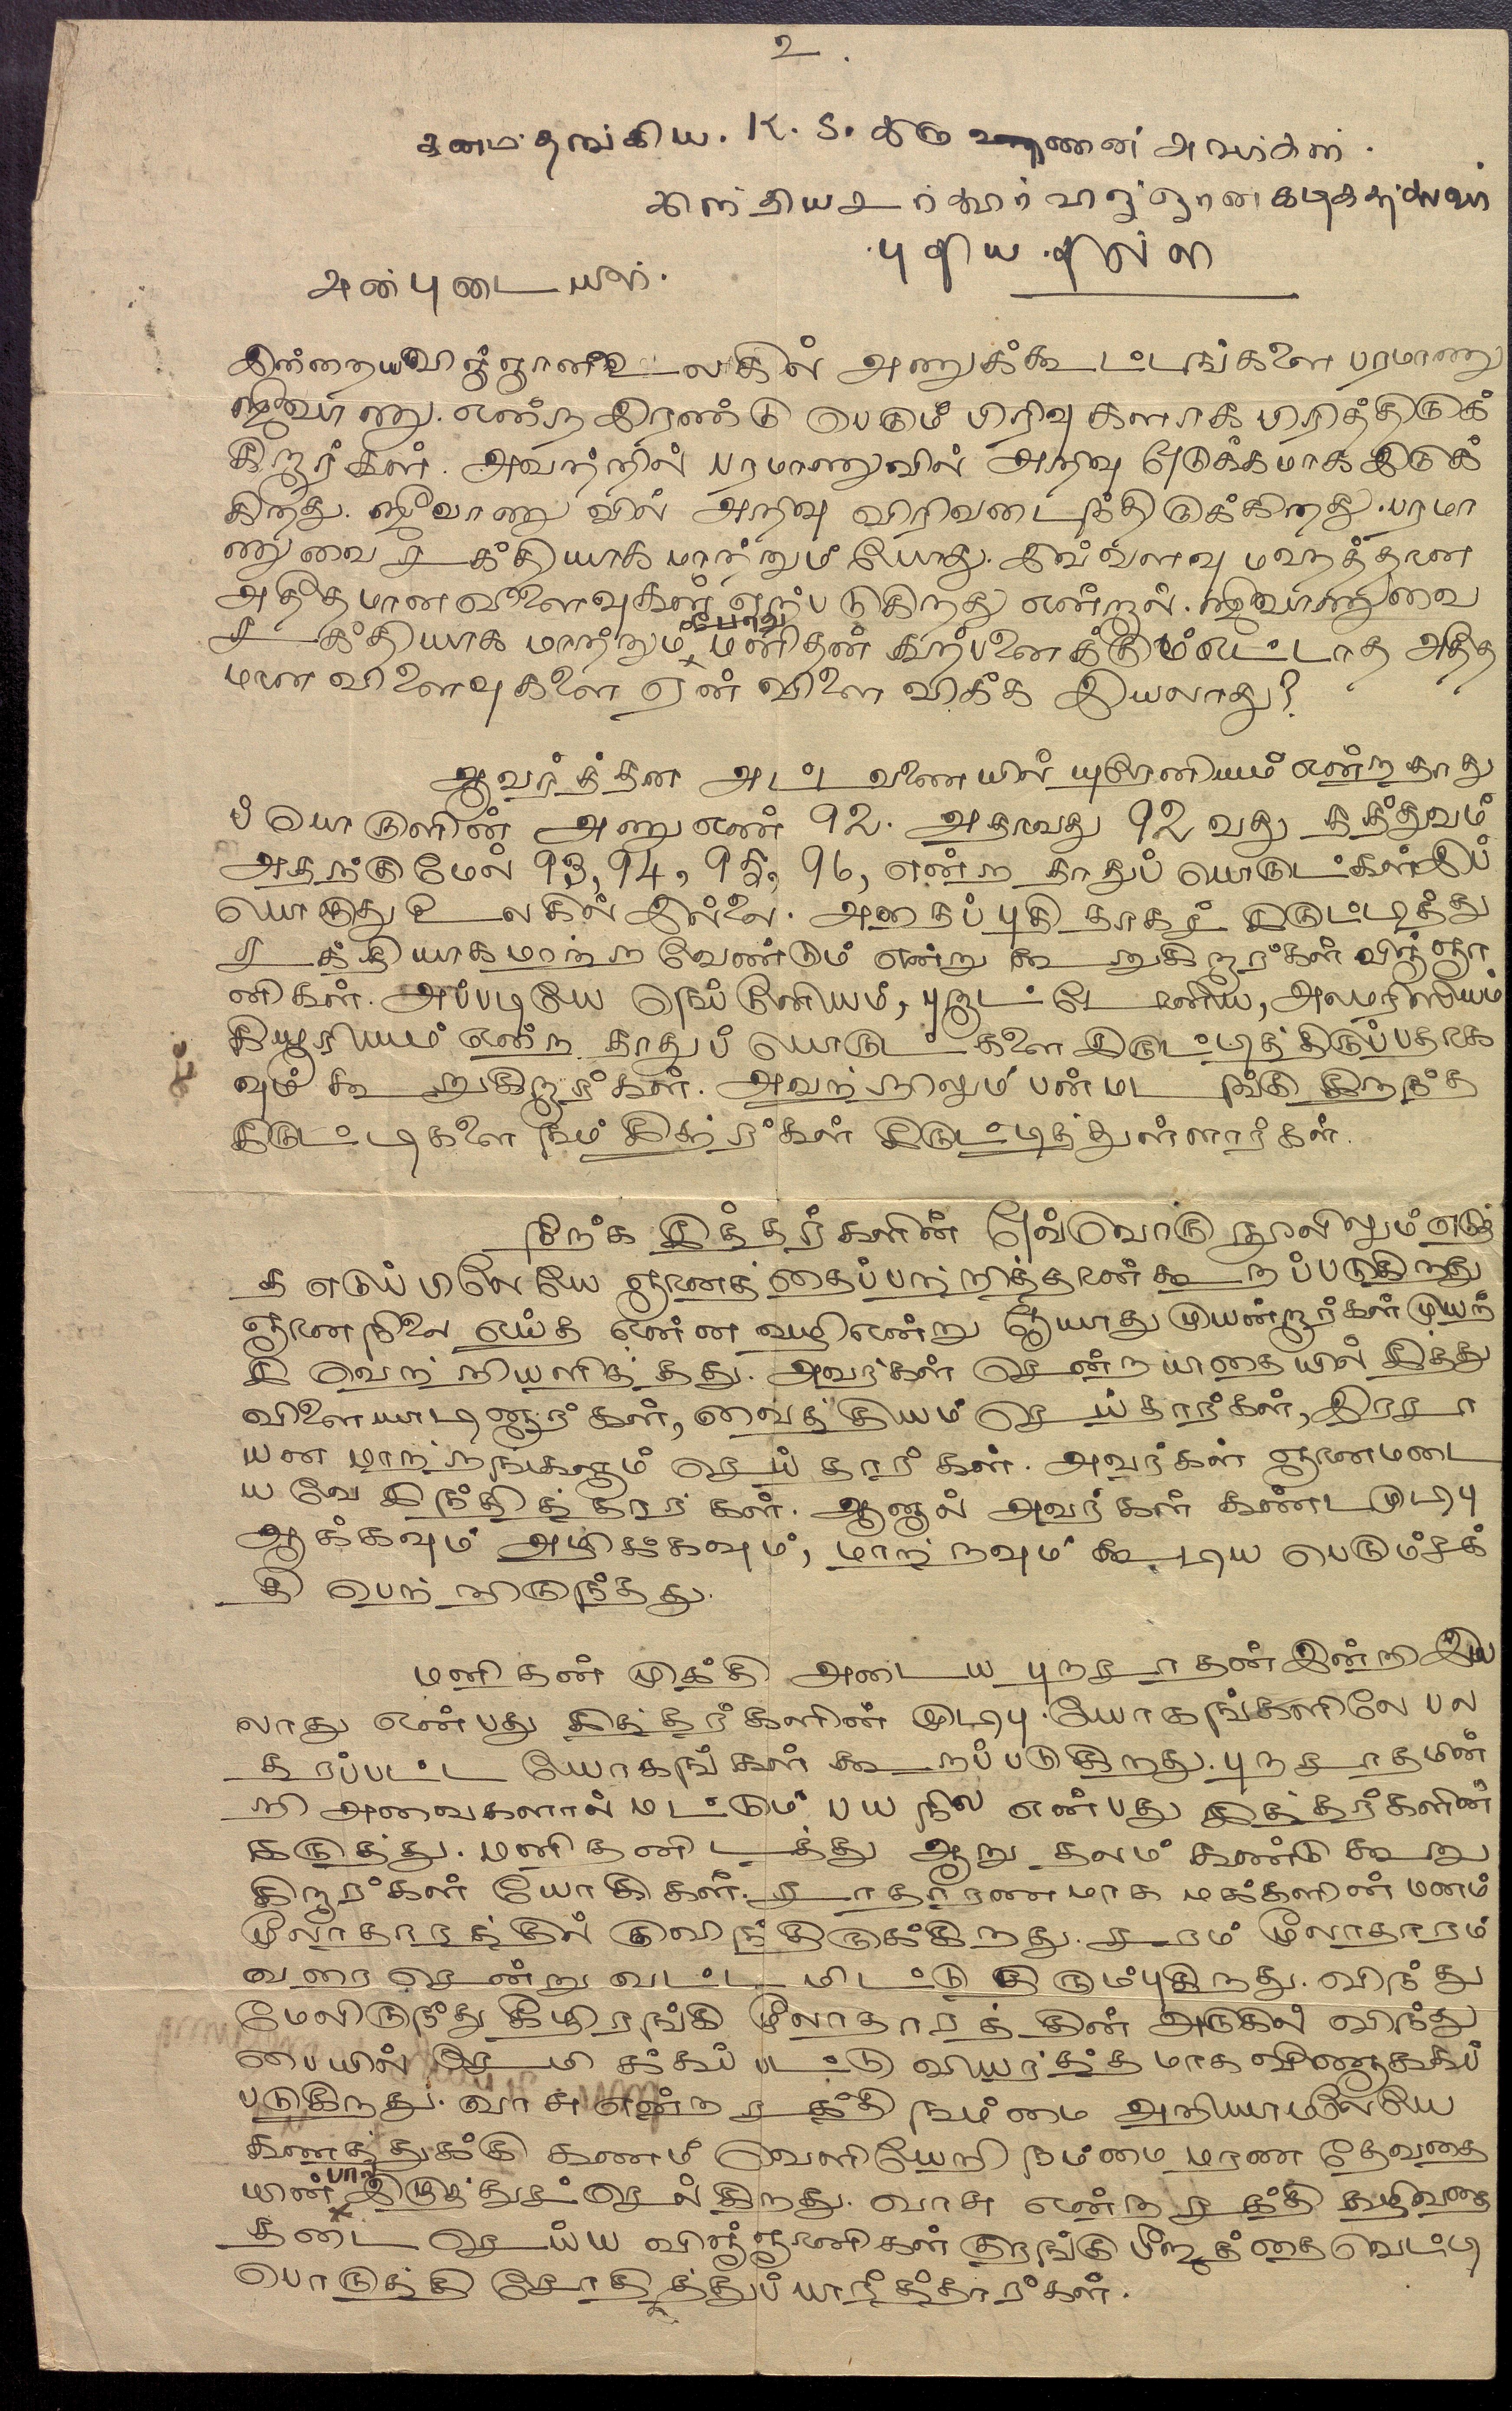 உ.
கனம் தங்கிய. K. S. கிருஷ்ணன் அவர்கள்.
இந்திய சர்க்கார் விஞ்ஞான
புதிய தில்லி
அன்புடையீர்.
இன்றைய விஞ்ஞான உலகில் அணுக்கூட்டங்களை பரமாணு
ஜீவாணு. என்ற இரண்டு பெரும் பிரிவுகளாக பிரித்திருக்
கிறார்கள். அவற்றில் பரமாணுவில் அறிவு ஒடுக்கமாக இருக்
கிறது. ஜீவாணுவில் அறிவு விரிவடைந்திருக்கிறது. பரமா
ணுவை சக்தியாக மாற்றும் போது. இவ்வளவு மகத்தான
அதீதமான விளைவுகள் ஏற்படுகிறது என்றால். ஜீவாணுவை
சக்தியாக மாற்றும் போது மனிதன் கற்பனைக்கும் எட்டாத அதீத
மான விளைவுகளை ஏன் விளைவிக்க இயலாது?
ஆவர்த்தன அட்டவணையில் யுரேனியம் என்ற தாது
ப் பொருளின் அணு எண் 92. அதாவது 92 வது தத்துவம்
அதற்கு மேல் 93, 94, 95, 96, என்ற தாதுப் பொருட்கள் இப்
பொழுது உலகில் இல்லை. அதைப் புதிதாகச் சிருட்டித்து
சக்தியாக மாற்ற வேண்டும் என்று கூறுகிறார்கள் விஞ்ஞா
னிகள். அப்படியே நெப்டூனியம், புளூட்டோனிய, அமரிஸியம்
கியூரியம் என்ற தாதுப் பொருட்களை சிருட்டித்திருப்பதாக
வும் கூறுகிறார்கள். அவற்றிலும் பன்மடங்கு சிறந்த
சிருட்டிகளை நம் சித்தர்கள் சிருட்டித்துள்ளார்கள்.
நிற்க சித்தர்களின் ஒவ்வொரு நூலிலும் எடுத்
த எடுப்பிலேயே ஞானத்தைப்பற்றித்தான் கூறப்படுகிறது
ஞானநிலை எய்த என்ன வழி என்று ஓயாது முயன்றார்கள் முயற்
சி வெற்றியளித்தது. அவர்கள் சென்ற பாதையில் சித்து
விளையாடினார்கள், வைத்தியம் செய்தார்கள், இரசா
யன மாற்றங்களும் செய்தார்கள். அவர்கள் ஞானமடை
யவே சிந்தித்தார்கள். ஆனால் அவர்கள் கண்ட முடிபு
ஆக்கவும் அழிக்கவும், மாற்றவும் கூடிய பெரும்சக்
தி பெற்றிருந்தது.
மனிதன் முக்தி அடைய புறசாதன் இன்றி இய
லாது என்பது சித்தர்களின் முடிபு. யோகங்களிலே பல
தரப்பட்ட யோகங்கள் கூறப்படுகிறது. புறசாதமின்
றி அவைகளால் மட்டும் பயனில என்பது சித்தர்களின்
கருத்து. மனிதனிடத்து ஆறு தலம் கண்டு கூறு
கிறார்கள் யோகிகள். சாதாரணமாக மக்களின் மனம்
மூலாதாரத்தில் குவிந்திருக்கிறது. சரம் மூலாதாரம்
வரை சென்று வட்டமிட்டு திரும்புகிறது. விந்து
மேலிருந்து கீழிறங்கி மூலாதாரத்தின் அருகில் விந்து
பையில் சேமிக்கப்பட்டு வியர்த்தமாக வீணாக்கப்
படுகிறது. வாசி என்ற சக்தி நம்மை அறியாமலேயே
கணத்துக்கு கணம் வெளியேறி நம்மை மரண தேவதை
யின் பால் இழுத்துச் செல்கிறது. வாசி என்ற சக்தி கழிவதை
தடை செய்ய விஞ்ஞானிகள் குரங்கு பீஜத்தை வெட்டி
பொருத்தி சோதித்துப் பார்த்தார்கள்.